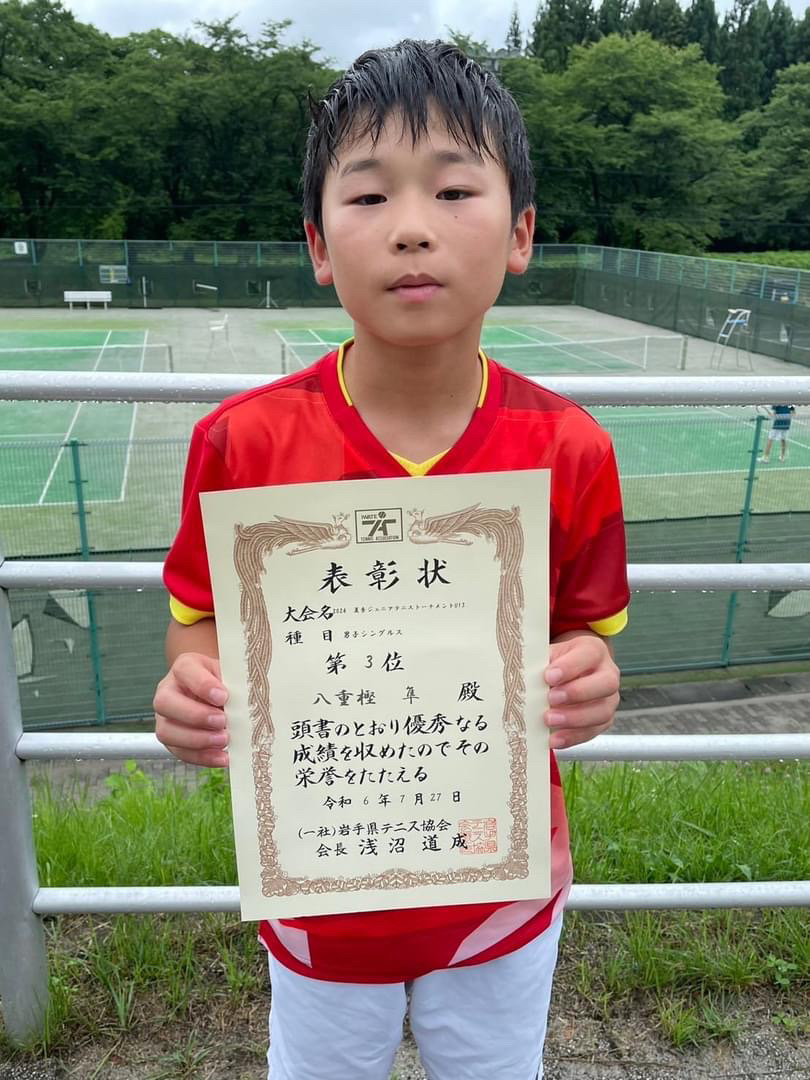 IWATE
TA
TENNIS ASSOCIATION
表彰状
大会名 2024 夏季ジュニアテニストーナメントU13
種目 男子シングルス
第 3 位
八重樫 隼 殿
頭書のとおり優秀なる
成績を収めたのでその
栄誉をたたえる
令和 6 年 7 月 27 日
(一社)岩手県テニス協会
会長 浅沼 道成